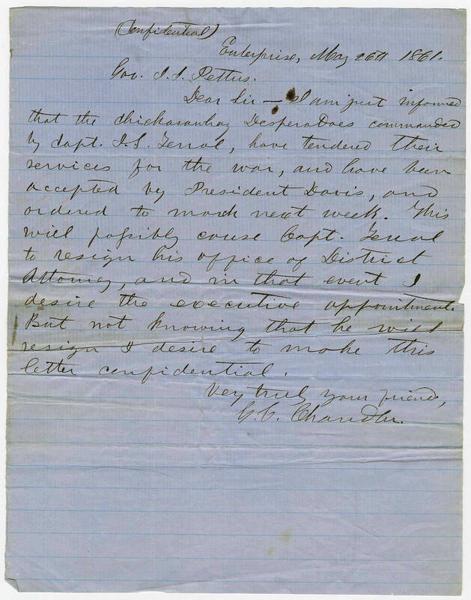 (Confidential)
Enterprise, May 26th 1861.
Gov. J. J. Pettus.
Dear Sir – I am just informed
that the Chickasawhay Desperadoes commanded
by Capt. J. S. Terral, have tendered their
services for the war, and have been
accepted by President Davis, and
ordered to march next week. This
will possibly cause Capt. Terral
to resign his office of District
Attorney, and in that event I
desire the executive appointment.
But not knowing that he will
resign I desire to make this
letter confidential.
Very truly your friend,
G. C. Chandler.